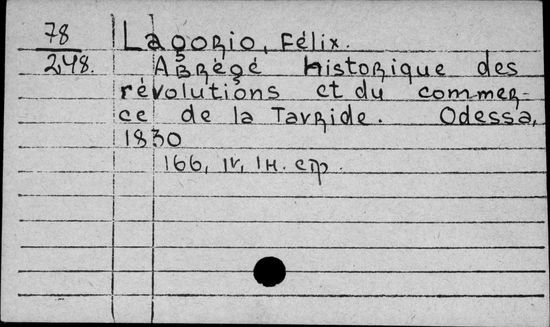 78
248.
Lagorio, Félix.
Abrégé historique des
révolutions et du commer-
ce de la Tavride. Odessa,
1830
166, IV, 1н. стр.